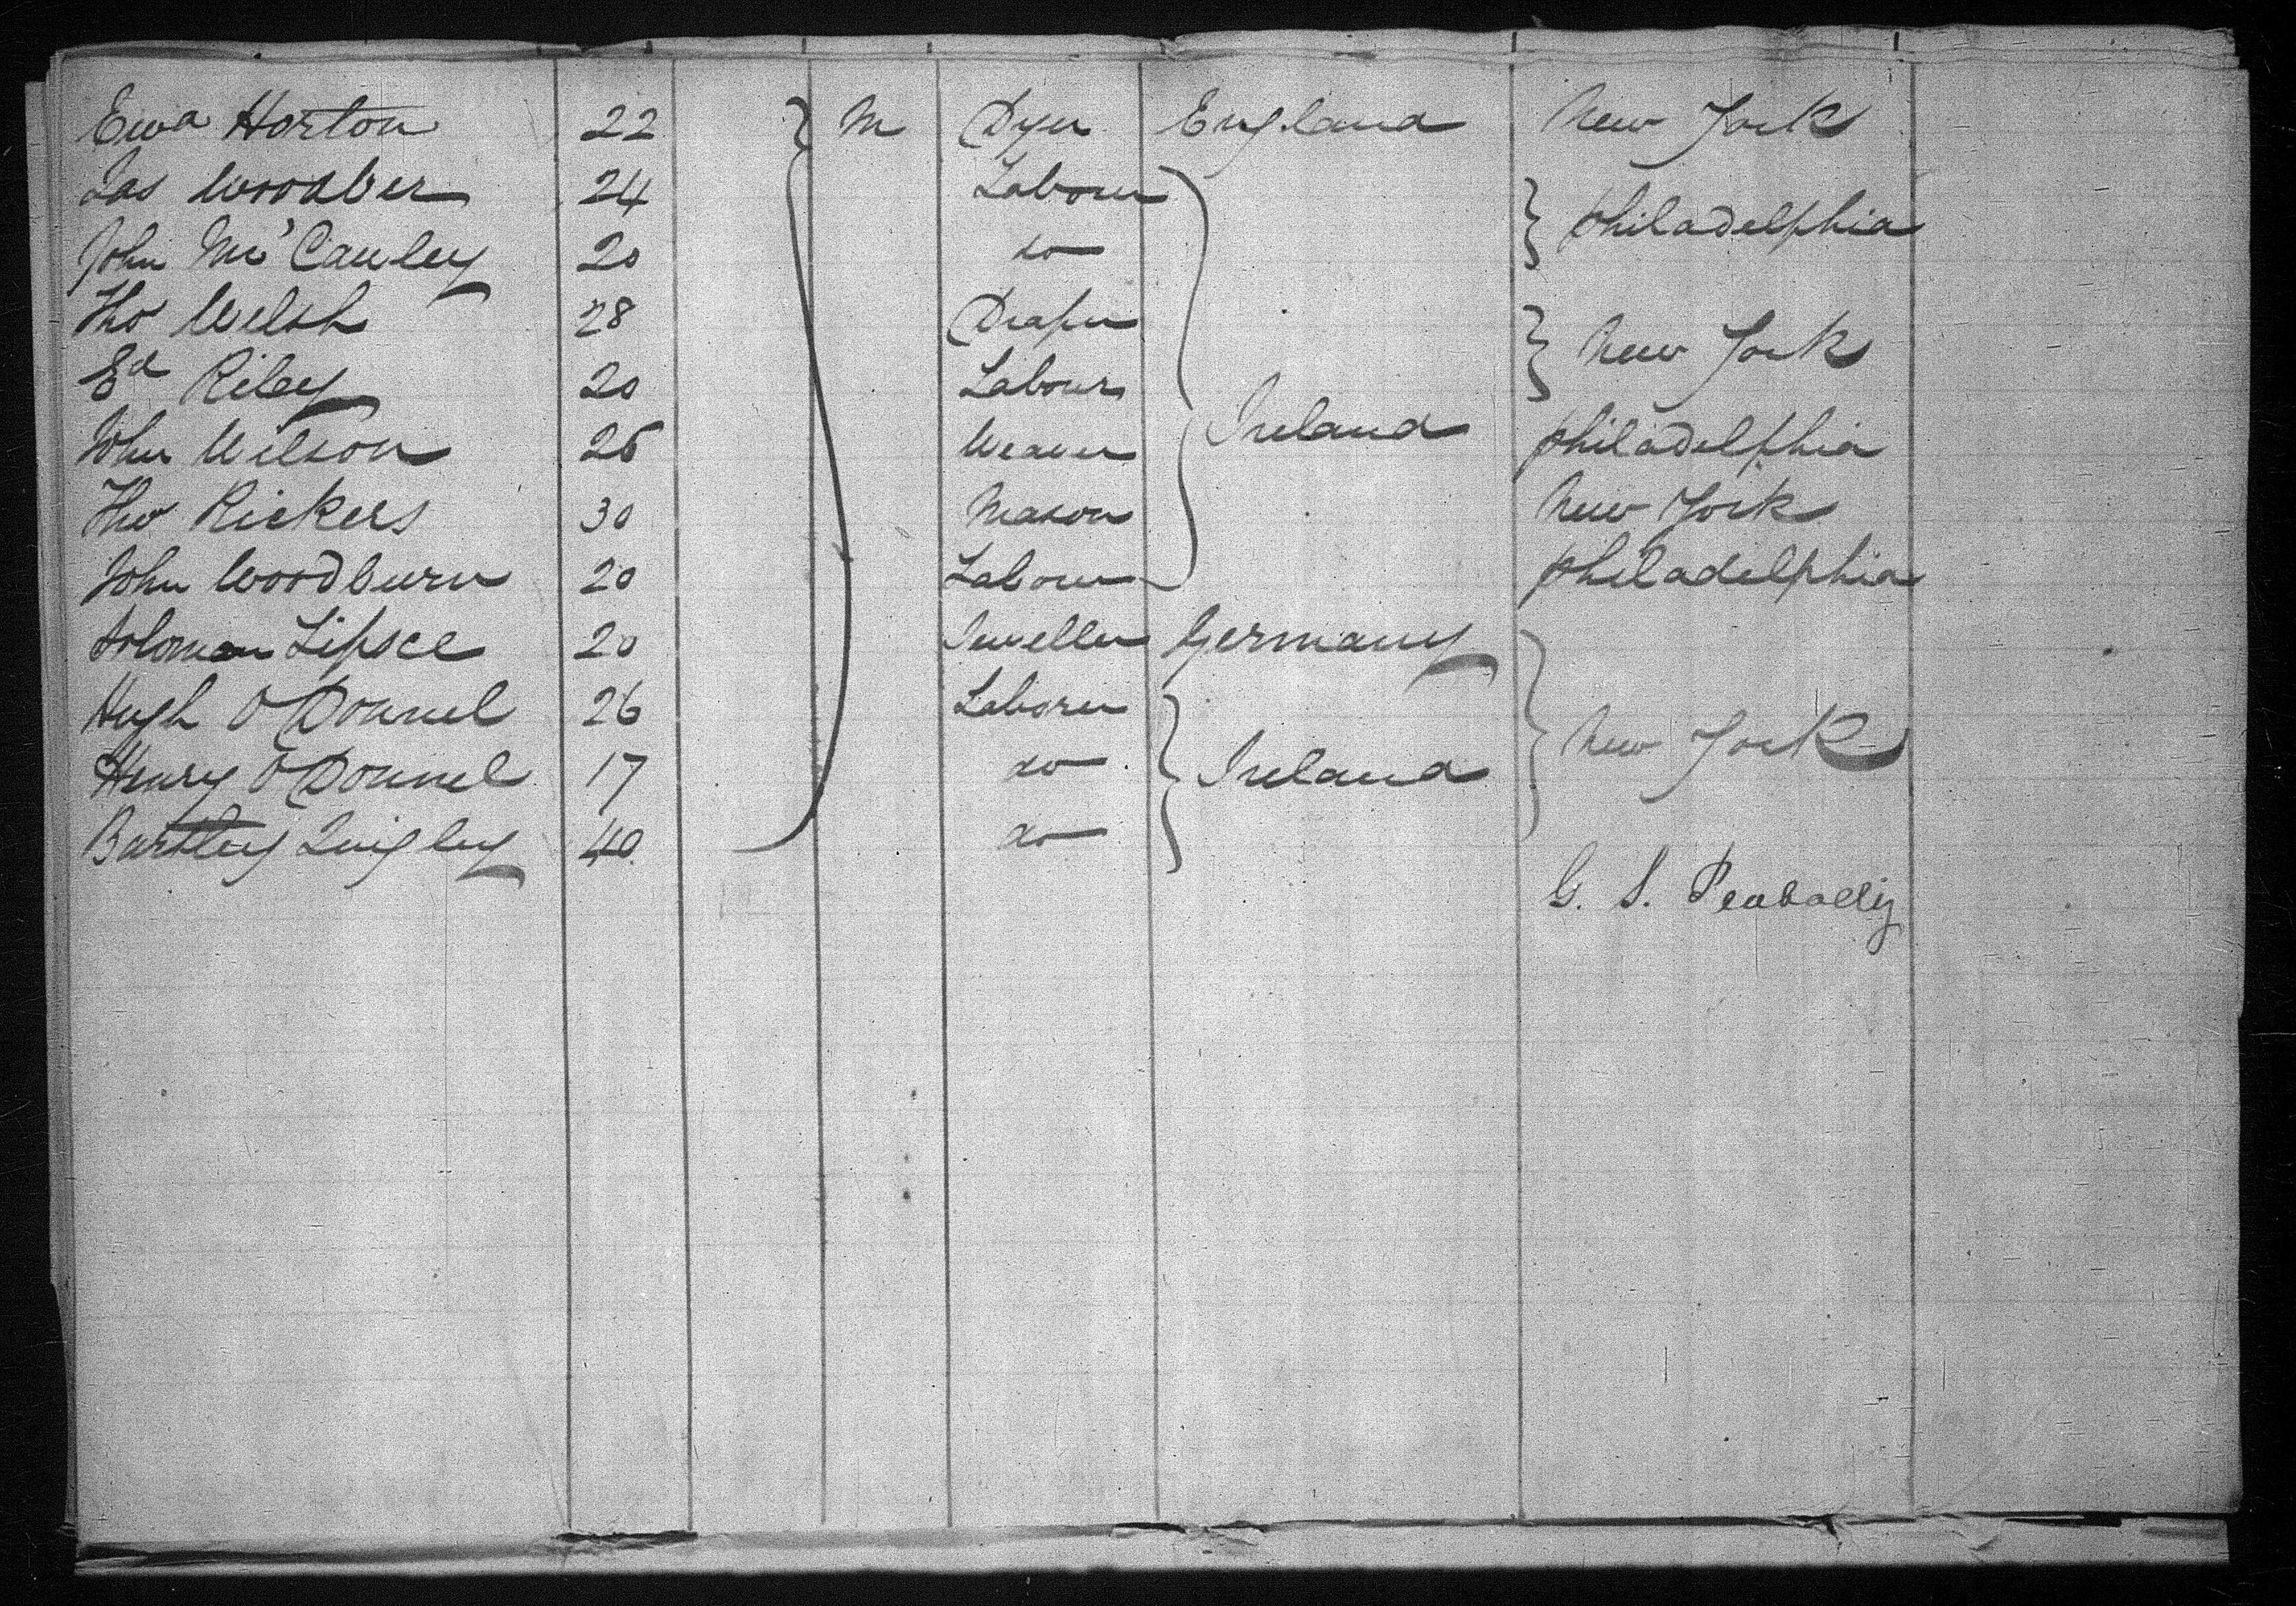 Ewd Horton 22 M Dyer England New York
Jas Woodber 24 Labourer Philadelphia
John McCauley 20 do
Tho Welsh 28 Draper New York
Ed Riley 20 Labour
John Wilson 26 Weaver Ireland Philadelphia
Tho Rickers 30 Mason New York
John Woodburn 20 Labourer Philadelphia
Solomon Lipsce 20 Jeweller Germany
Hugh O Donnel 26 Laborer New York
Henry O Donnel 17 do Ireland
Bartley Quigley 40 do
G. S.